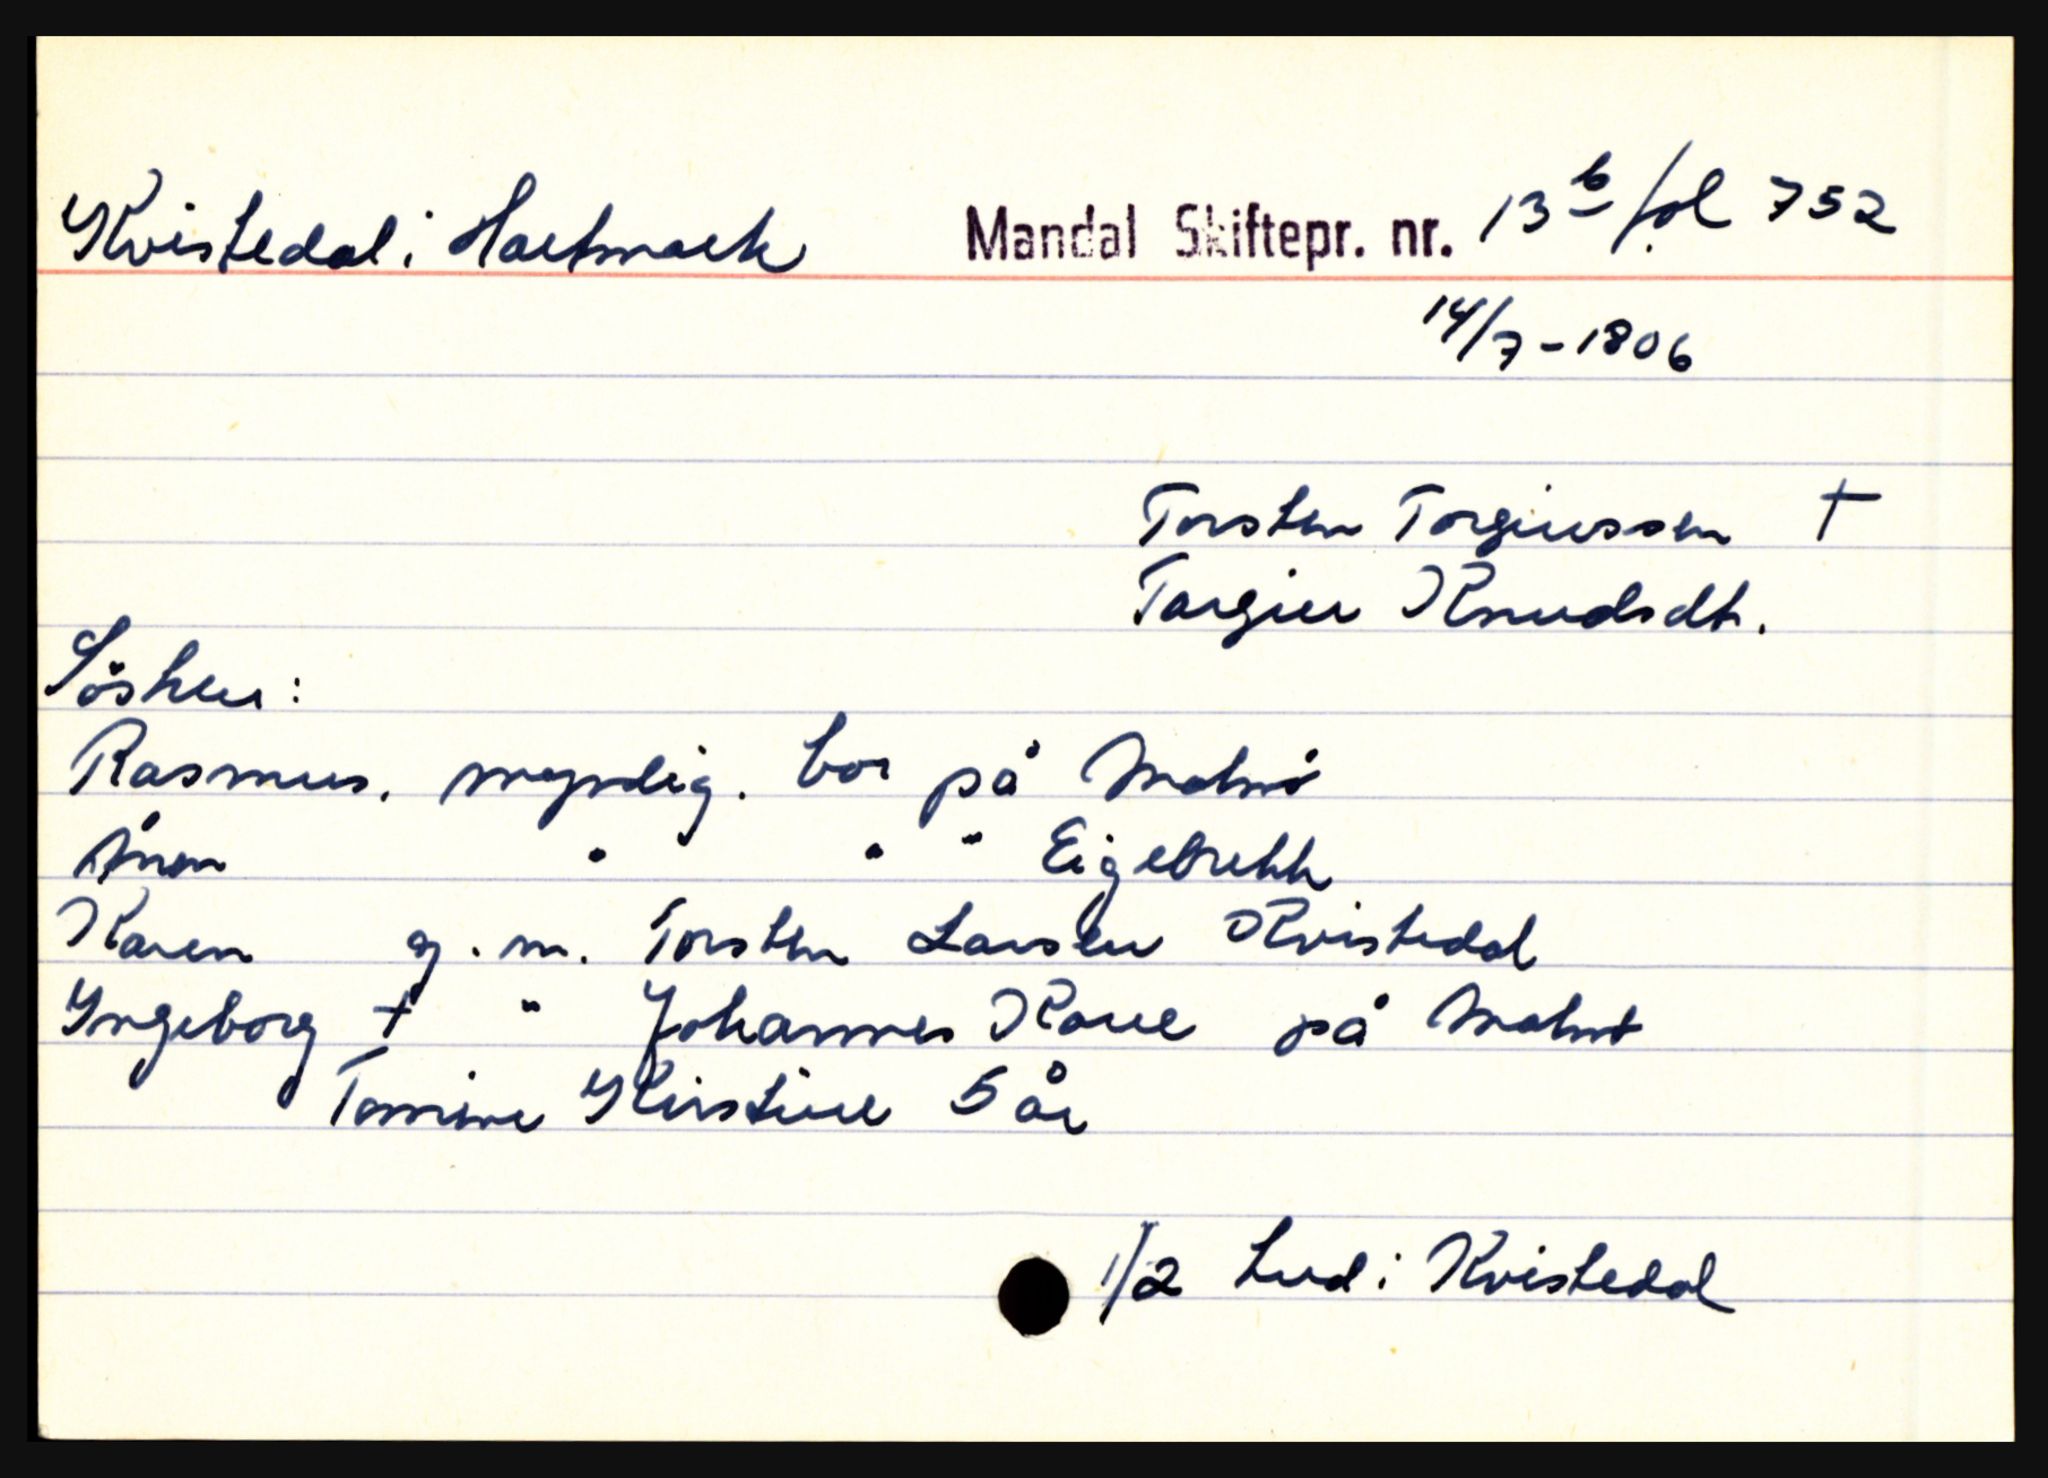 Kvistedal i Hartmark Mandal Skiftepr. nr. 13 b fol 752
14/7-1806
Torsten Torgiussen †
Torgier Knudsdt.
Søsken:
Rasmus. myndig. bor på Malmö
Ånen " " " Eigebrekk
Karen g. m. Torsten Larsen Kvistedal
Yngeborg † " Johannes Kaue på Malmö
Tomine Kirstine 5 år
1/2 hud i Kvistedal